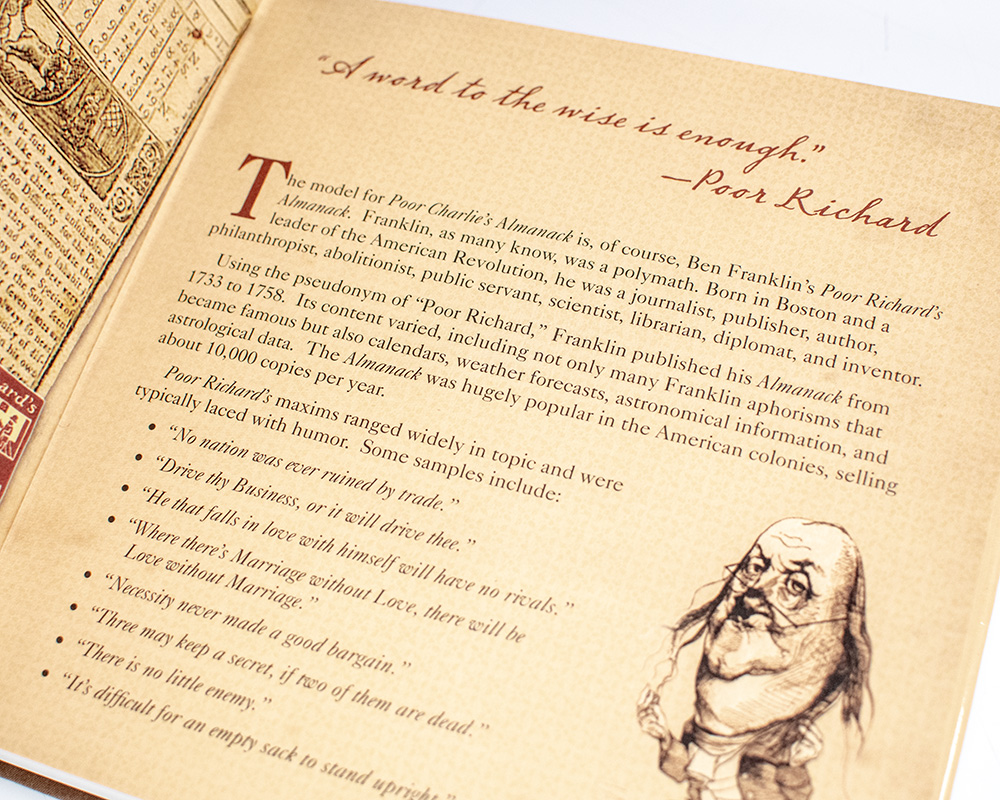 "A word to the wise is enough."
—Poor Richard
The model for Poor Charlie's Almanack is, of course, Ben Franklin's Poor Richard's
Almanack. Franklin, as many know, was a polymath. Born in Boston and a
leader of the American Revolution, he was a journalist, publisher, author,
philanthropist, abolitionist, public servant, scientist, librarian, diplomat, and inventor.
Using the pseudonym of "Poor Richard," Franklin published his Almanack from
1733 to 1758. Its content varied, including not only many Franklin aphorisms that
became famous but also calendars, weather forecasts, astronomical information, and
astrological data. The Almanack was hugely popular in the American colonies, selling
about 10,000 copies per year.
Poor Richard's maxims ranged widely in topic and were
typically laced with humor. Some samples include:
• "No nation was ever ruined by trade."
• "Drive thy Business, or it will drive thee."
• "He that falls in love with himself will have no rivals."
• "Where there's Marriage without Love, there will be
Love without Marriage."
• "Necessity never made a good bargain."
• "Three may keep a secret, if two of them are dead."
• "There is no little enemy."
• "It's difficult for an empty sack to stand upright."